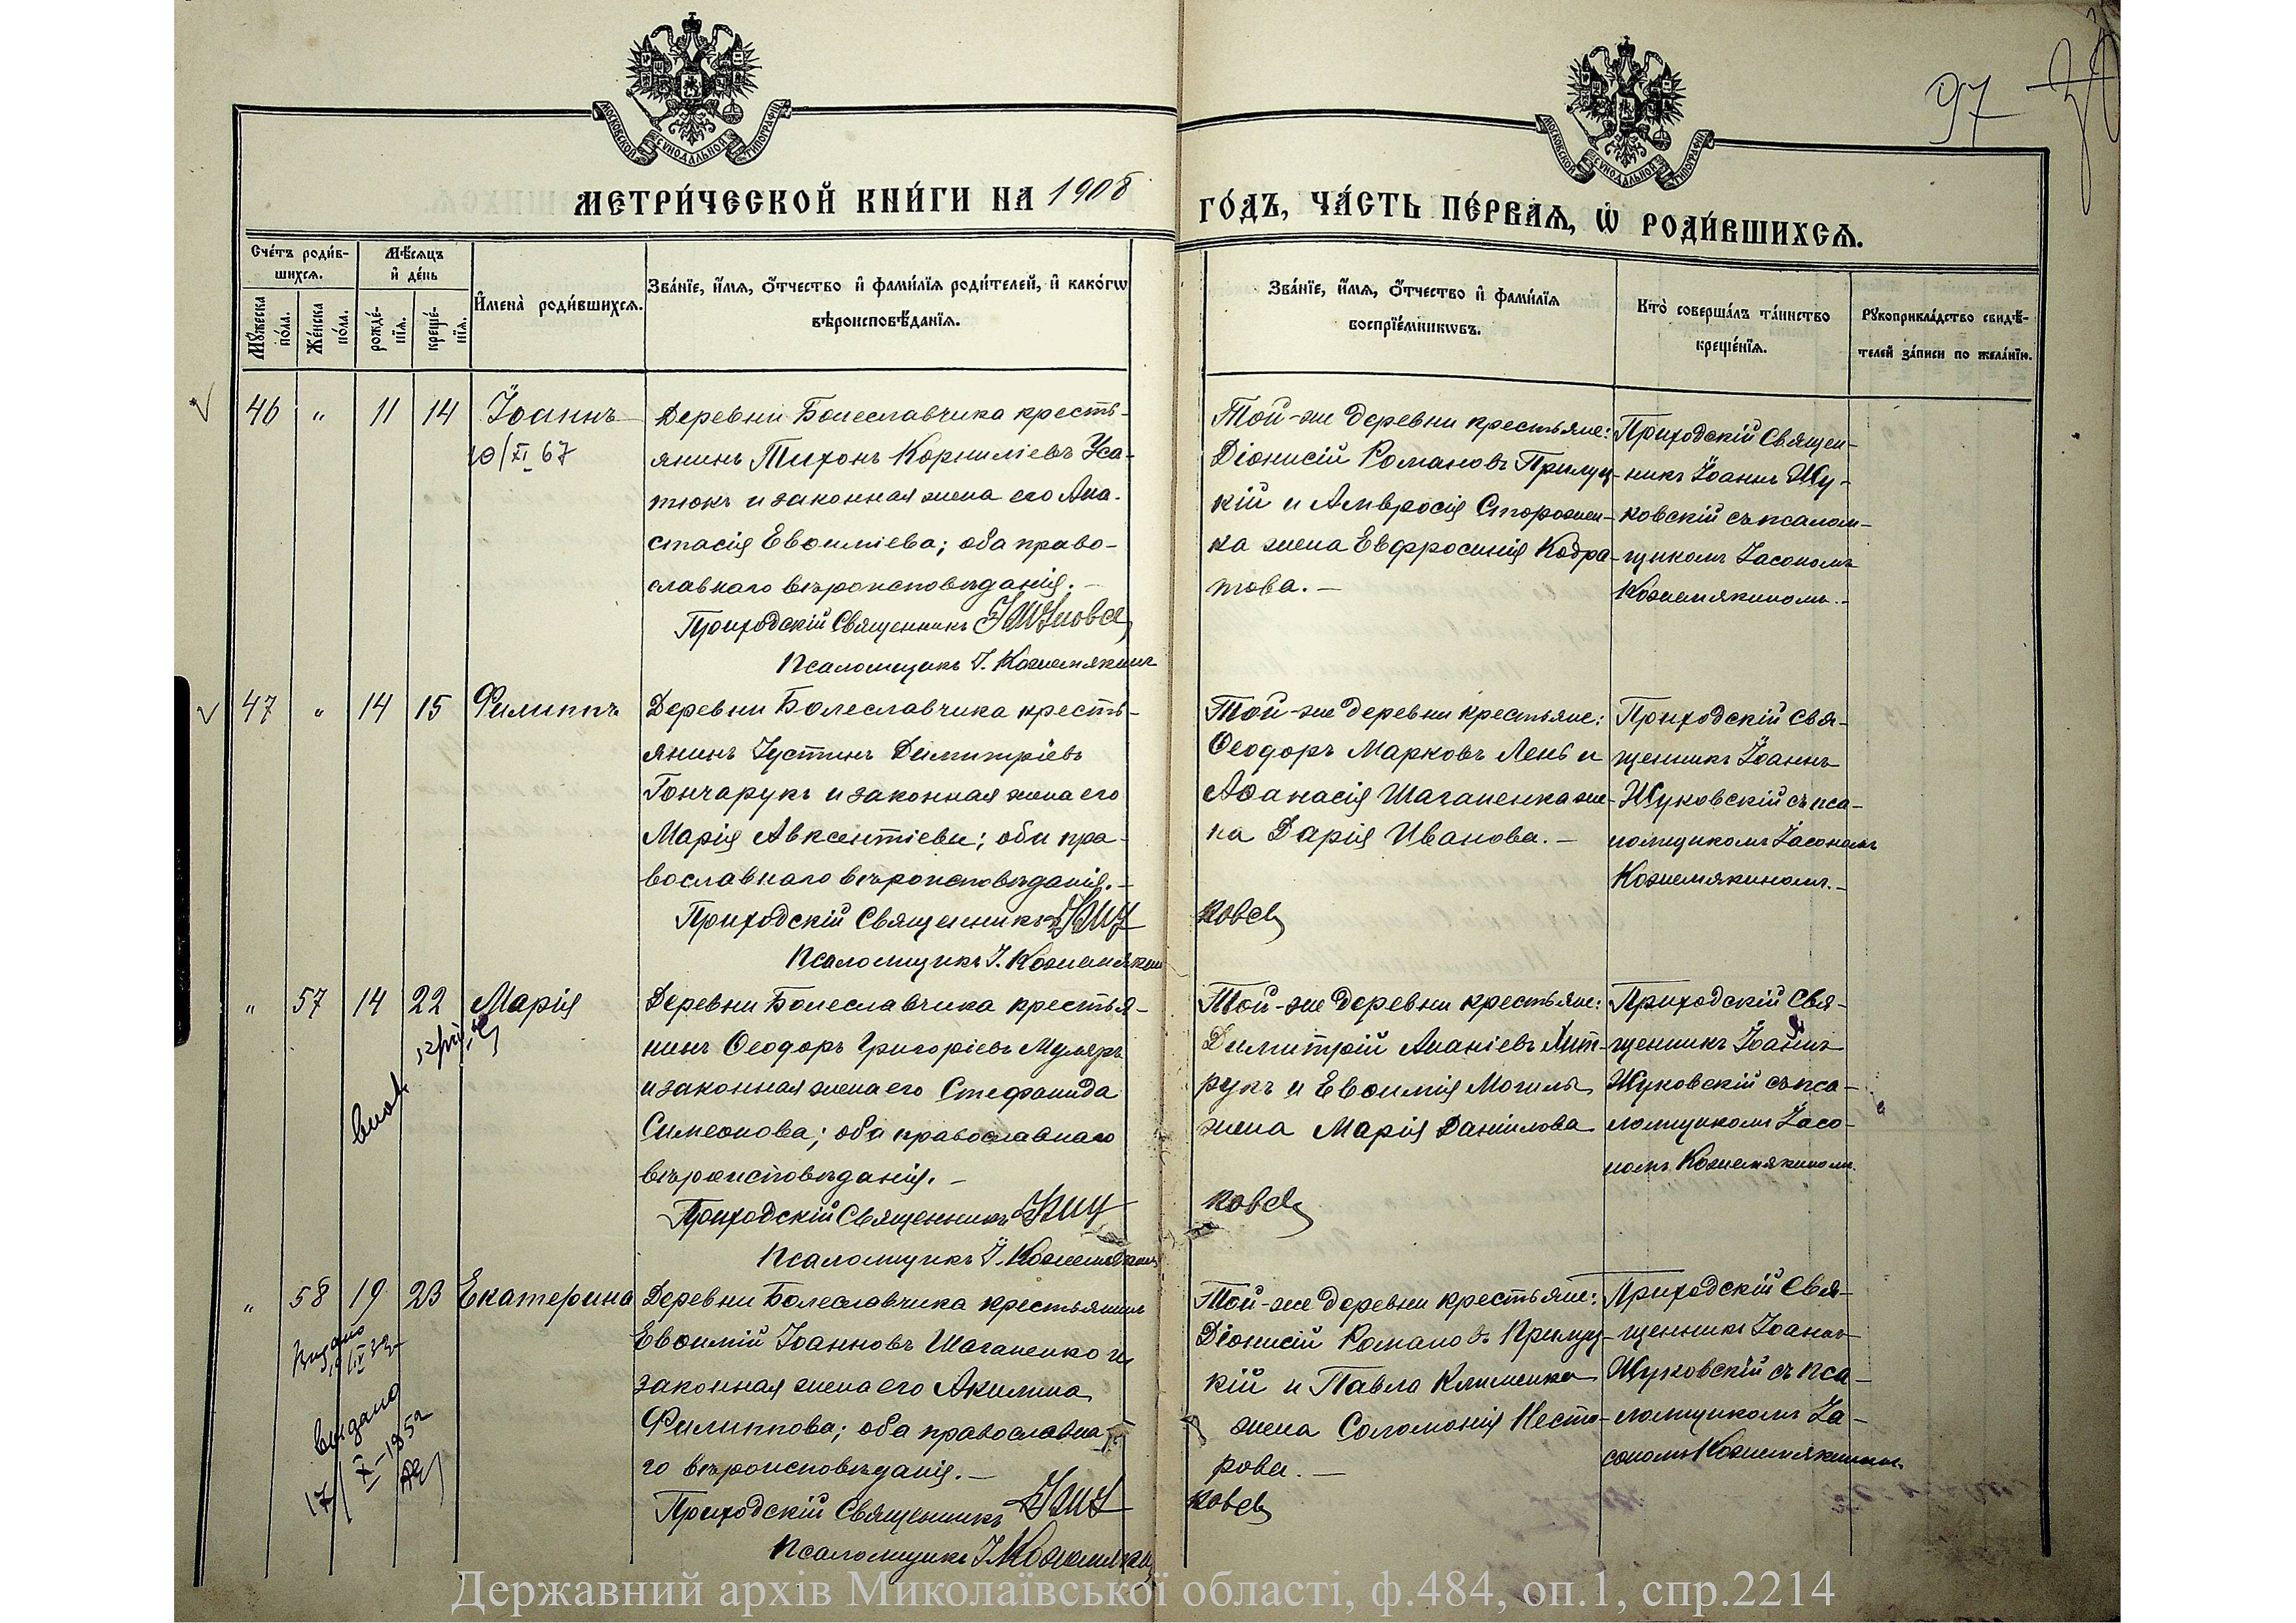 97
МОСКОВСКОЙ СѴНОДАЛЬНОЙ ТИПОГРАФІИ
МОСКОВСКОЙ СѴНОДАЛЬНОЙ ТИПОГРАФІИ
МЕТРИ́ЧЕСКОЙ КНИ́ГИ НА 1908
ГО́ДЪ, ЧА́СТЬ ПЕ́РВАѦ, Ѡ҆ РОДИ́ВШИХСѦ.
Сче́тъ роди́в-
шихсѧ.
Мꙋ́жеска
по́ла.
Же́нска
по́ла.
Мѣ́сѧцъ
и҆ де́нь
рожде́-
нїѧ.
креще́-
нїѧ.
И҆мена̀ роди́вшихсѧ.
Зва́нїе, и҆́мѧ, ѻ҆́тчество и҆ фами́лїѧ роди́телей, и҆ како́гѡ
вѣроисповѣ́данїѧ.
Зва́нїе, и҆́мѧ, ѻ҆́тчество и҆ фами́лїѧ
воспрїе́мникѡвъ.
Кто̀ соверша́лъ та́инство
креще́нїѧ.
Рꙋкоприкла́дство свидѣ́-
телей за́писи по жела́нїю.
46 " 11 14 Іоаннъ
10/XI 67
Деревни Болеславчика кресть-
янинъ Тихонъ Корниліевъ Уса-
тюкъ и законная жена его Ана-
стасія Евѳиміева; оба право-
славнаго вѣроисповѣданія.-
Приходскій Священникъ
Псаломщикъ І. Кожемякинъ
Той-же деревни крестьяне:
Діонисій Романовъ Прилуц-
кій и Амвросія Сторожен-
ка жена Евфросинія Кодра-
това.-
Приходскій Священ-
никъ Іоаннъ Жу-
ковскій съ псалом-
щикомъ Іасономъ
Кожемякиномъ.-
47 " 14 15 Филиппъ
Деревни Болеславчика кресть-
янинъ Іустинъ Димитріевъ
Гончарукъ и законная жена его
Марія Авксентіева; оба пра-
вославнаго вѣроисповѣданія.-
Приходскій Священникъ
Псаломщикъ І. Кожемякин
Той-же деревни крестьяне:
Ѳеодоръ Марковъ Лень и
Аѳанасія Шагапенка же-
на Дарія Иванова.-
Приходскій Свя-
щенникъ Іоаннъ
Жуковскій съ пса-
ломщикомъ Іасономъ
Кожемякиномъ.-
" 57 14 22 Марія
Деревни Болеславчика крестья-
нинъ Ѳеодоръ Григоріевъ Муляръ
и законная жена его Стефанида
Симеонова; оба православнаго
вѣроисповѣданія.-
Приходскій Священникъ
Псаломщикъ І. Кожемякинъ
Той-же деревни крестьяне:
Димитрій Ананіевъ Лит-
рукъ и Евѳимія Могилы
жена Марія Даніилова
Приходскій Свя-
щенникъ Іоаннъ
Жуковскій съ пса-
ломщикомъ Іасо-
номъ Кожемякиномъ.
" 58 19 23 Екатерина
Видано
Видано
17/X-1952
Деревни Болеславчика крестьянинъ
Евѳимій Іоанновъ Шагапенко и
законная жена его Акилина
Филиппова; оба православна-
го вѣроисповѣданія.-
Приходскій Священникъ
Псаломщикъ І. Кожемякин
Той-же деревни крестьяне:
Діонисій Романовъ Прилуц-
кій и Павла Клименка
жена Соломонія Несто-
рова.-
Приходскій Свя-
щенникъ Іоаннъ
Жуковскій съ пса-
ломщикомъ Іа-
сономъ Кожемякиномъ.
Державний архів Миколаївської області, ф.484, оп.1, спр.2214